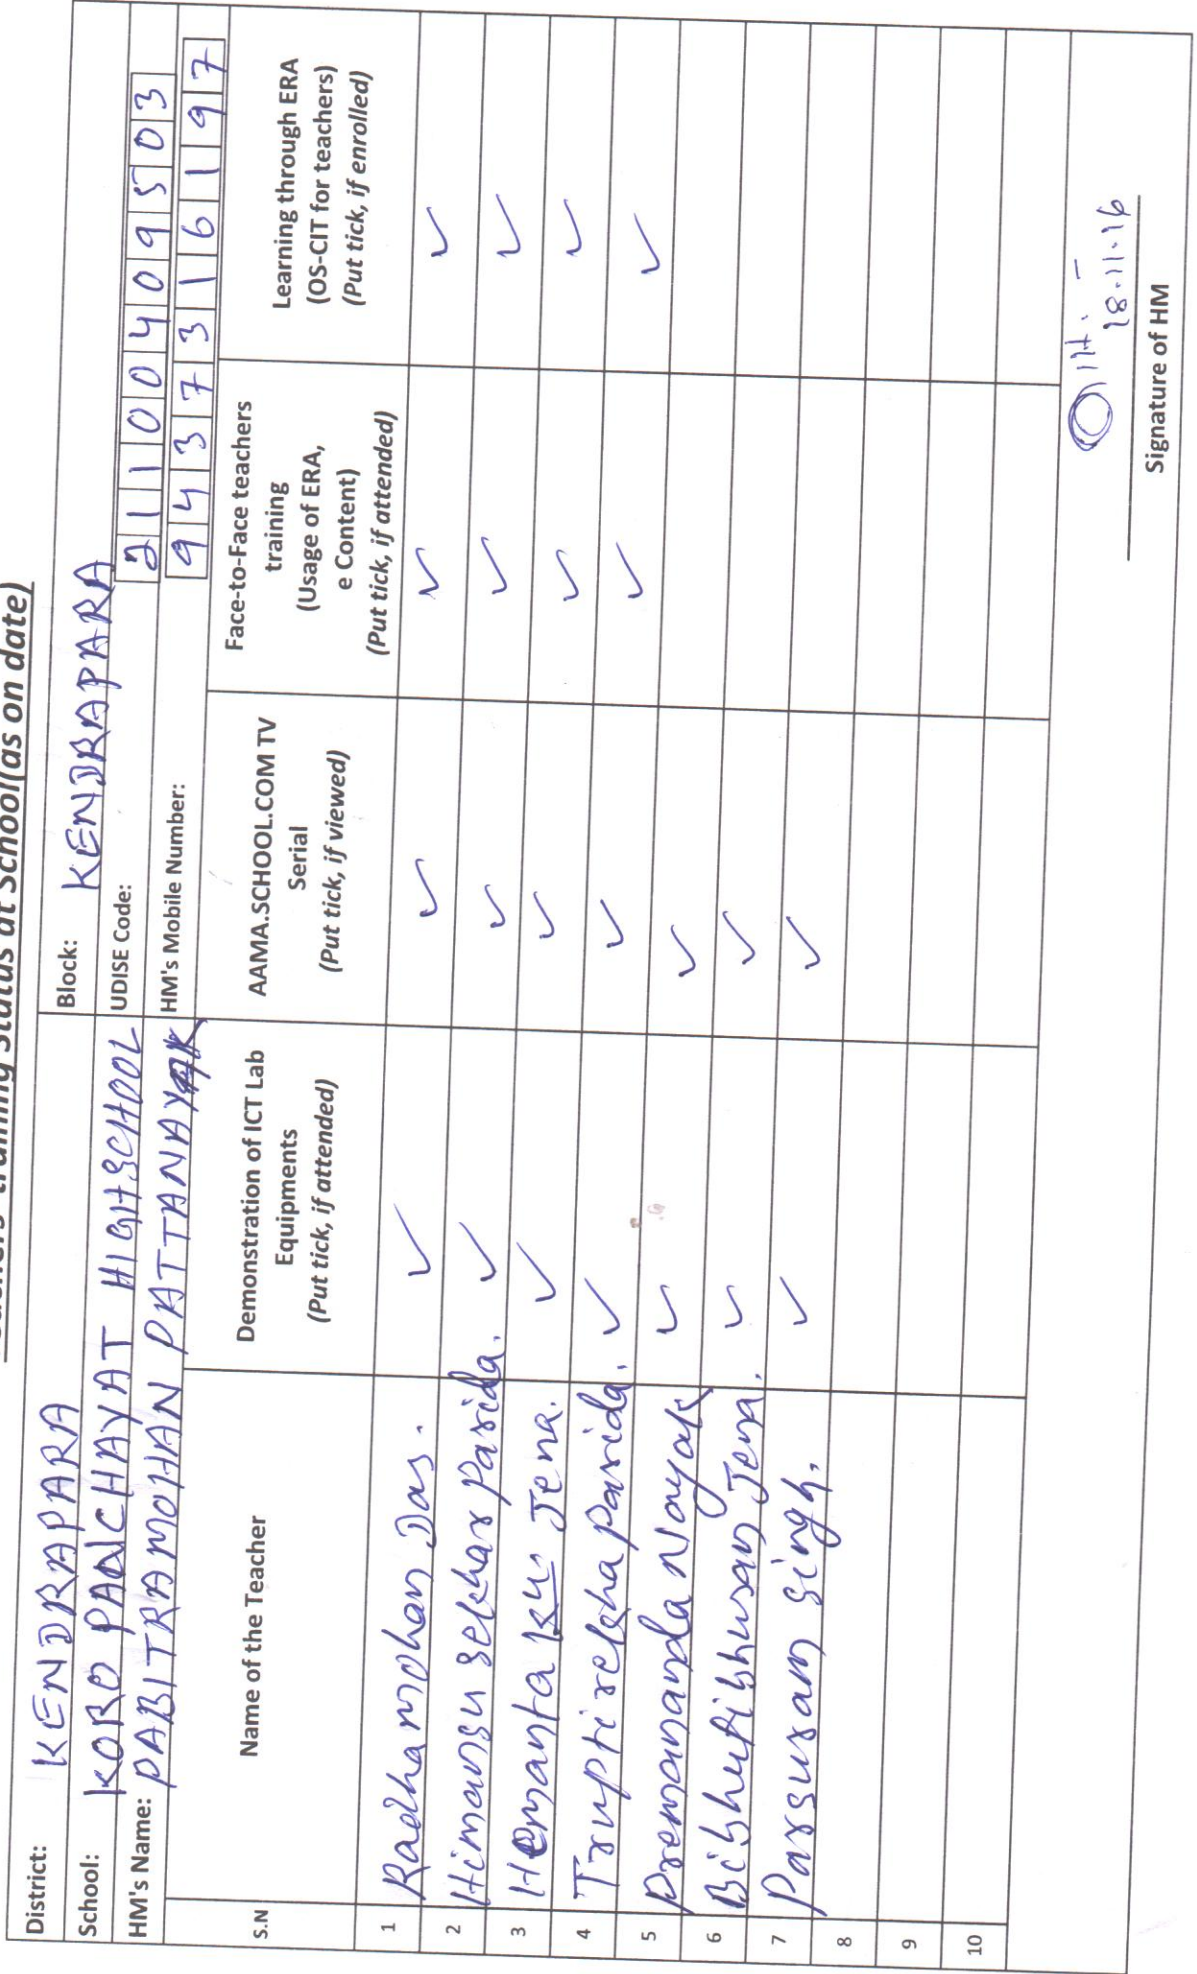 Teachers' training Status at School(as on date)
District: KENDRAPARA Block: KENDRAPARA
School: KORO PANCHAYAT HIGH SCHOOL UDISE Code: 21100409503
HM's Name: PABITRAMOHAN PATTANAYAK HM's Mobile Number: 9437316197
S.N Name of the Teacher Demonstration of ICT Lab Equipments (Put tick, if attended) AAMA.SCHOOL.COM TV Serial (Put tick, if viewed) Face-to-Face teachers training (Usage of ERA, e Content) (Put tick, if attended) Learning through ERA (OS-CIT for teachers) (Put tick, if enrolled)
1 Radhamohan Das. ✓ ✓ ✓ ✓
2 Himansu sekhar Parida. ✓ ✓ ✓ ✓
3 Hemanta ku Jena. ✓ ✓ ✓ ✓
4 Trupti rekha Parida. ✓ ✓ ✓ ✓
5 Premananda Nayak ✓ ✓
6 Bibhuti bhusan Jena. ✓ ✓
7 Parsuram singh. ✓ ✓
8
9
10
18.11.16
Signature of HM